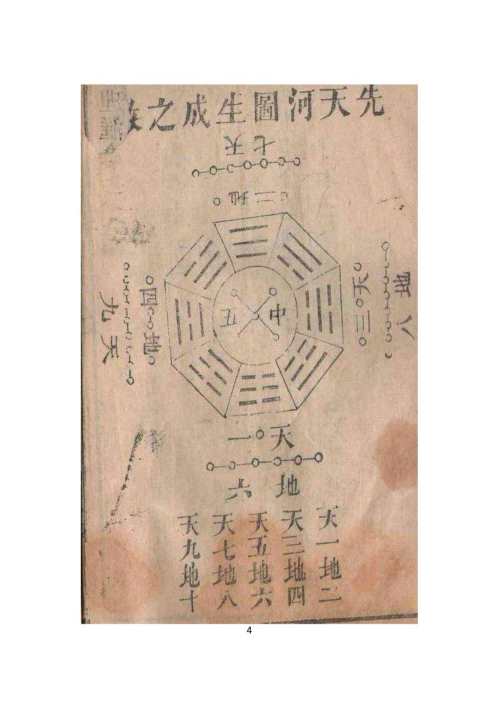 先天河圖生成之
天七
地二
天三
地八
地四
天九
中五
天一
地六
天一地二
天三地四
天五地六
天七地八
天九地十
4